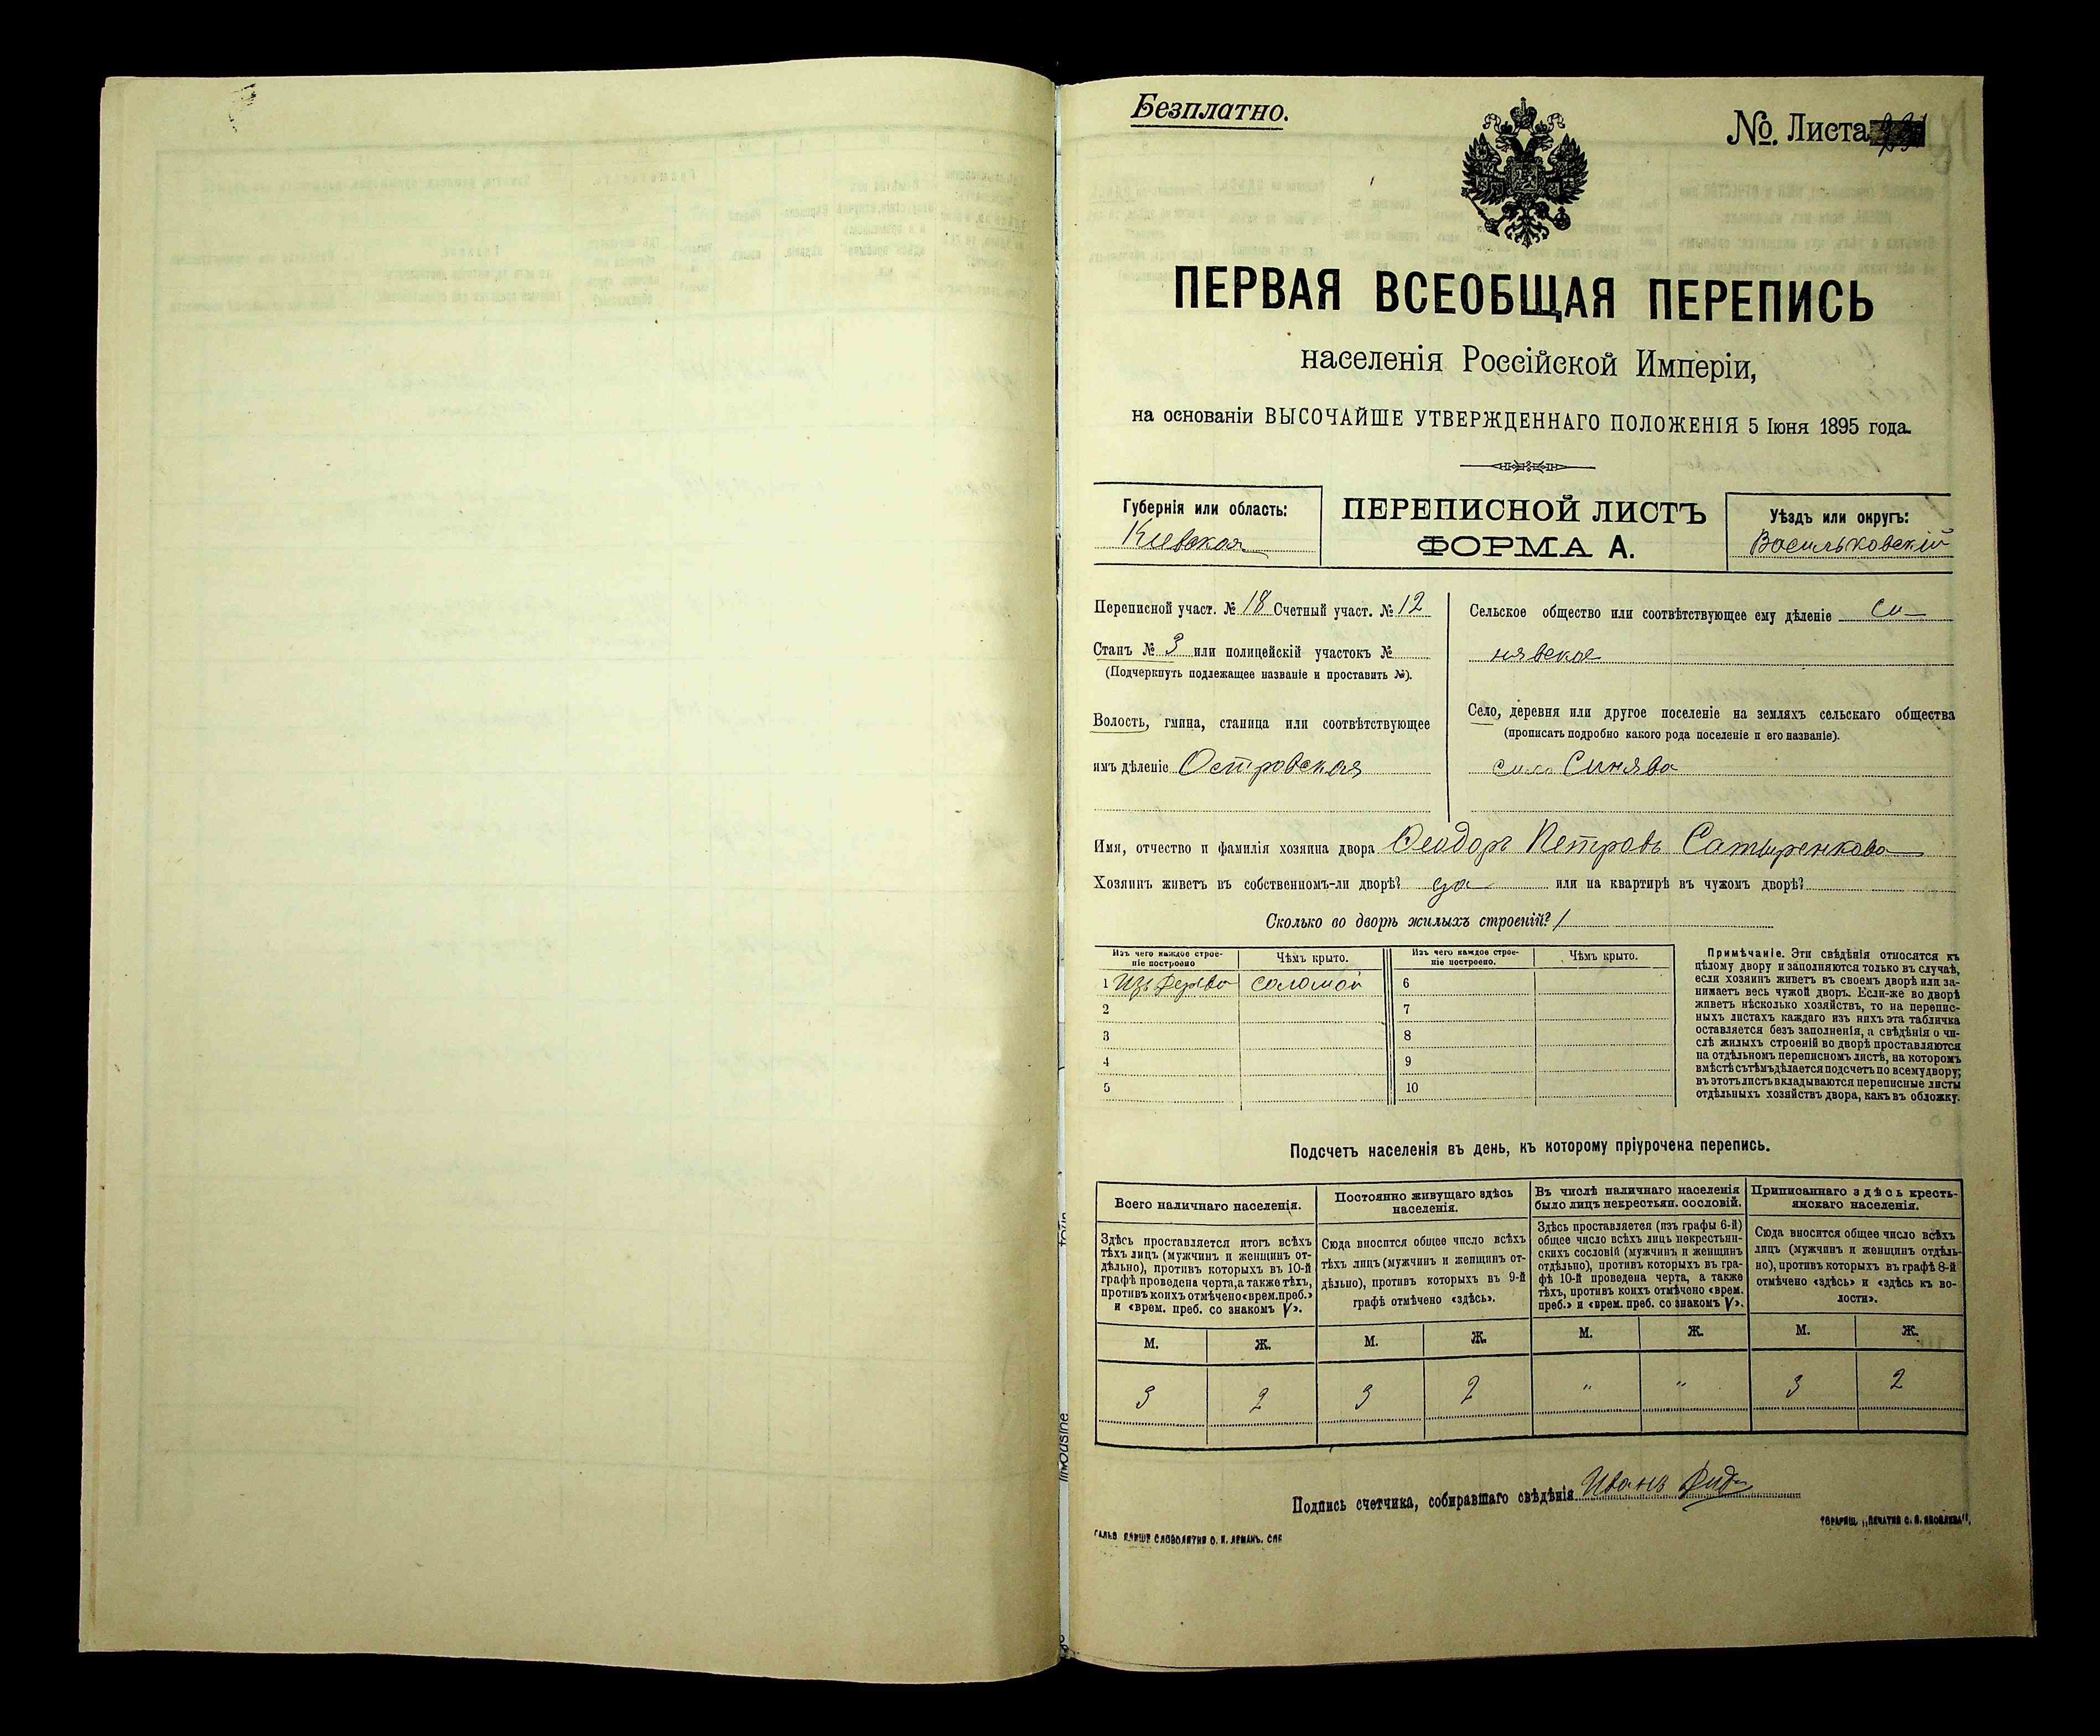 Безплатно.
№. Листа
ПЕРВАЯ ВСЕОБЩАЯ ПЕРЕПИСЬ
населенія Россійской Имперіи,
на основаніи ВЫСОЧАЙШЕ УТВЕРЖДЕННАГО ПОЛОЖЕНІЯ 5 Іюня 1895 года.
Губернія или область:
Кіевская
ПЕРЕПИСНОЙ ЛИСТЪ
ФОРМА А.
Уѣздъ или округъ:
Васильковскій
Переписной участ. № 18 Счетный участ. № 12
Станъ № 3 или полицейскій участокъ №
(Подчеркнуть подлежащее названіе и проставить №).
Волость, гмина, станица или соотвѣтствующее
имъ дѣленіе Островская
Сельское общество или соотвѣтствующее ему дѣленіе Си-
нявское
Село, деревня или другое поселеніе на земляхъ сельскаго общества
(прописать подробно какого рода поселеніе и его названіе).
село Синява
Имя, отчество и фамилія хозяина двора Ѳеодоръ Петровъ Сатыренково
Хозяинъ живетъ въ собственномъ-ли дворѣ? да или на квартирѣ въ чужомъ дворѣ?
Сколько во дворѣ жилыхъ строеній? 1
Изъ чего каждое строе-
ніе построено
Чѣмъ крыто.
Изъ чего каждое строе-
ніе построено.
Чѣмъ крыто.
1 Изъ дерева соломой 6
2 7
3 8
4 9
5 10
Примѣчаніе. Эти свѣдѣнія относятся къ
цѣлому двору и заполняются только въ случаѣ,
если хозяинъ живетъ въ своемъ дворѣ или за-
нимаетъ весь чужой дворъ. Если-же во дворѣ
живетъ нѣсколько хозяйствъ, то на перепис-
ныхъ листахъ каждаго изъ нихъ эта табличка
оставляется безъ заполненія, а свѣдѣнія о чи-
слѣ жилыхъ строеній во дворѣ проставляются
на отдѣльномъ переписномъ листѣ, на которомъ
вмѣстѣ съ тѣмъ дѣлается подсчетъ по всему двору;
въ этотъ листъ вкладываются переписные листы
отдѣльныхъ хозяйствъ двора, какъ въ обложку.
Подсчетъ населенія въ день, къ которому пріурочена перепись.
Всего наличнаго населенія.
Здѣсь проставляется итогъ всѣхъ
тѣхъ лицъ (мужчинъ и женщинъ от-
дѣльно), противъ которыхъ въ 10-й
графѣ проведена черта, а также тѣхъ,
противъ коихъ отмѣчено «врем. преб.»
и «врем. преб. со знакомъ V».
Постоянно живущаго здѣсь
населенія.
Сюда вносится общее число всѣхъ
тѣхъ лицъ (мужчинъ и женщинъ от-
дѣльно), противъ которыхъ въ 9-й
графѣ отмѣчено «здѣсь».
Въ числѣ наличнаго населенія
было лицъ некрестьян. сословій.
Здѣсь проставляется (изъ графы 6-й)
общее число всѣхъ лицъ некрестьян-
скихъ сословій (мужчинъ и женщинъ
отдѣльно), противъ которыхъ въ гра-
фѣ 10-й проведена черта, а также
тѣхъ, противъ коихъ отмѣчено «врем.
преб.» и «врем. преб. со знакомъ V».
Приписаннаго здѣсь кресть-
янскаго населенія.
Сюда вносится общее число всѣхъ
лицъ (мужчинъ и женщинъ отдѣль-
но), противъ которыхъ въ графѣ 8-й
отмѣчено «здѣсь» и «здѣсь къ во-
лости».
М. Ж. М. Ж. М. Ж. М. Ж.
3 2 3 2 " " 3 2
Подпись счетчика, собиравшаго свѣдѣнія Иванъ
ТОВАРИЩ. „ПЕЧАТНЯ С. П. ЯКОВЛЕВА".
limousine